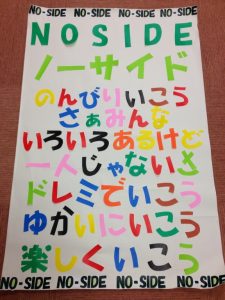 NO-SIDE NO-SIDE NO-SIDE NO-SIDE
NO SIDE
ノーサイド
のんびりいこう
さぁみんな
いろいろあるけど
一人じゃないさ
ドレミでいこう
ゆかいにいこう
楽しくいこう
NO-SIDE NO-SIDE NO-SIDE NO-SIDE